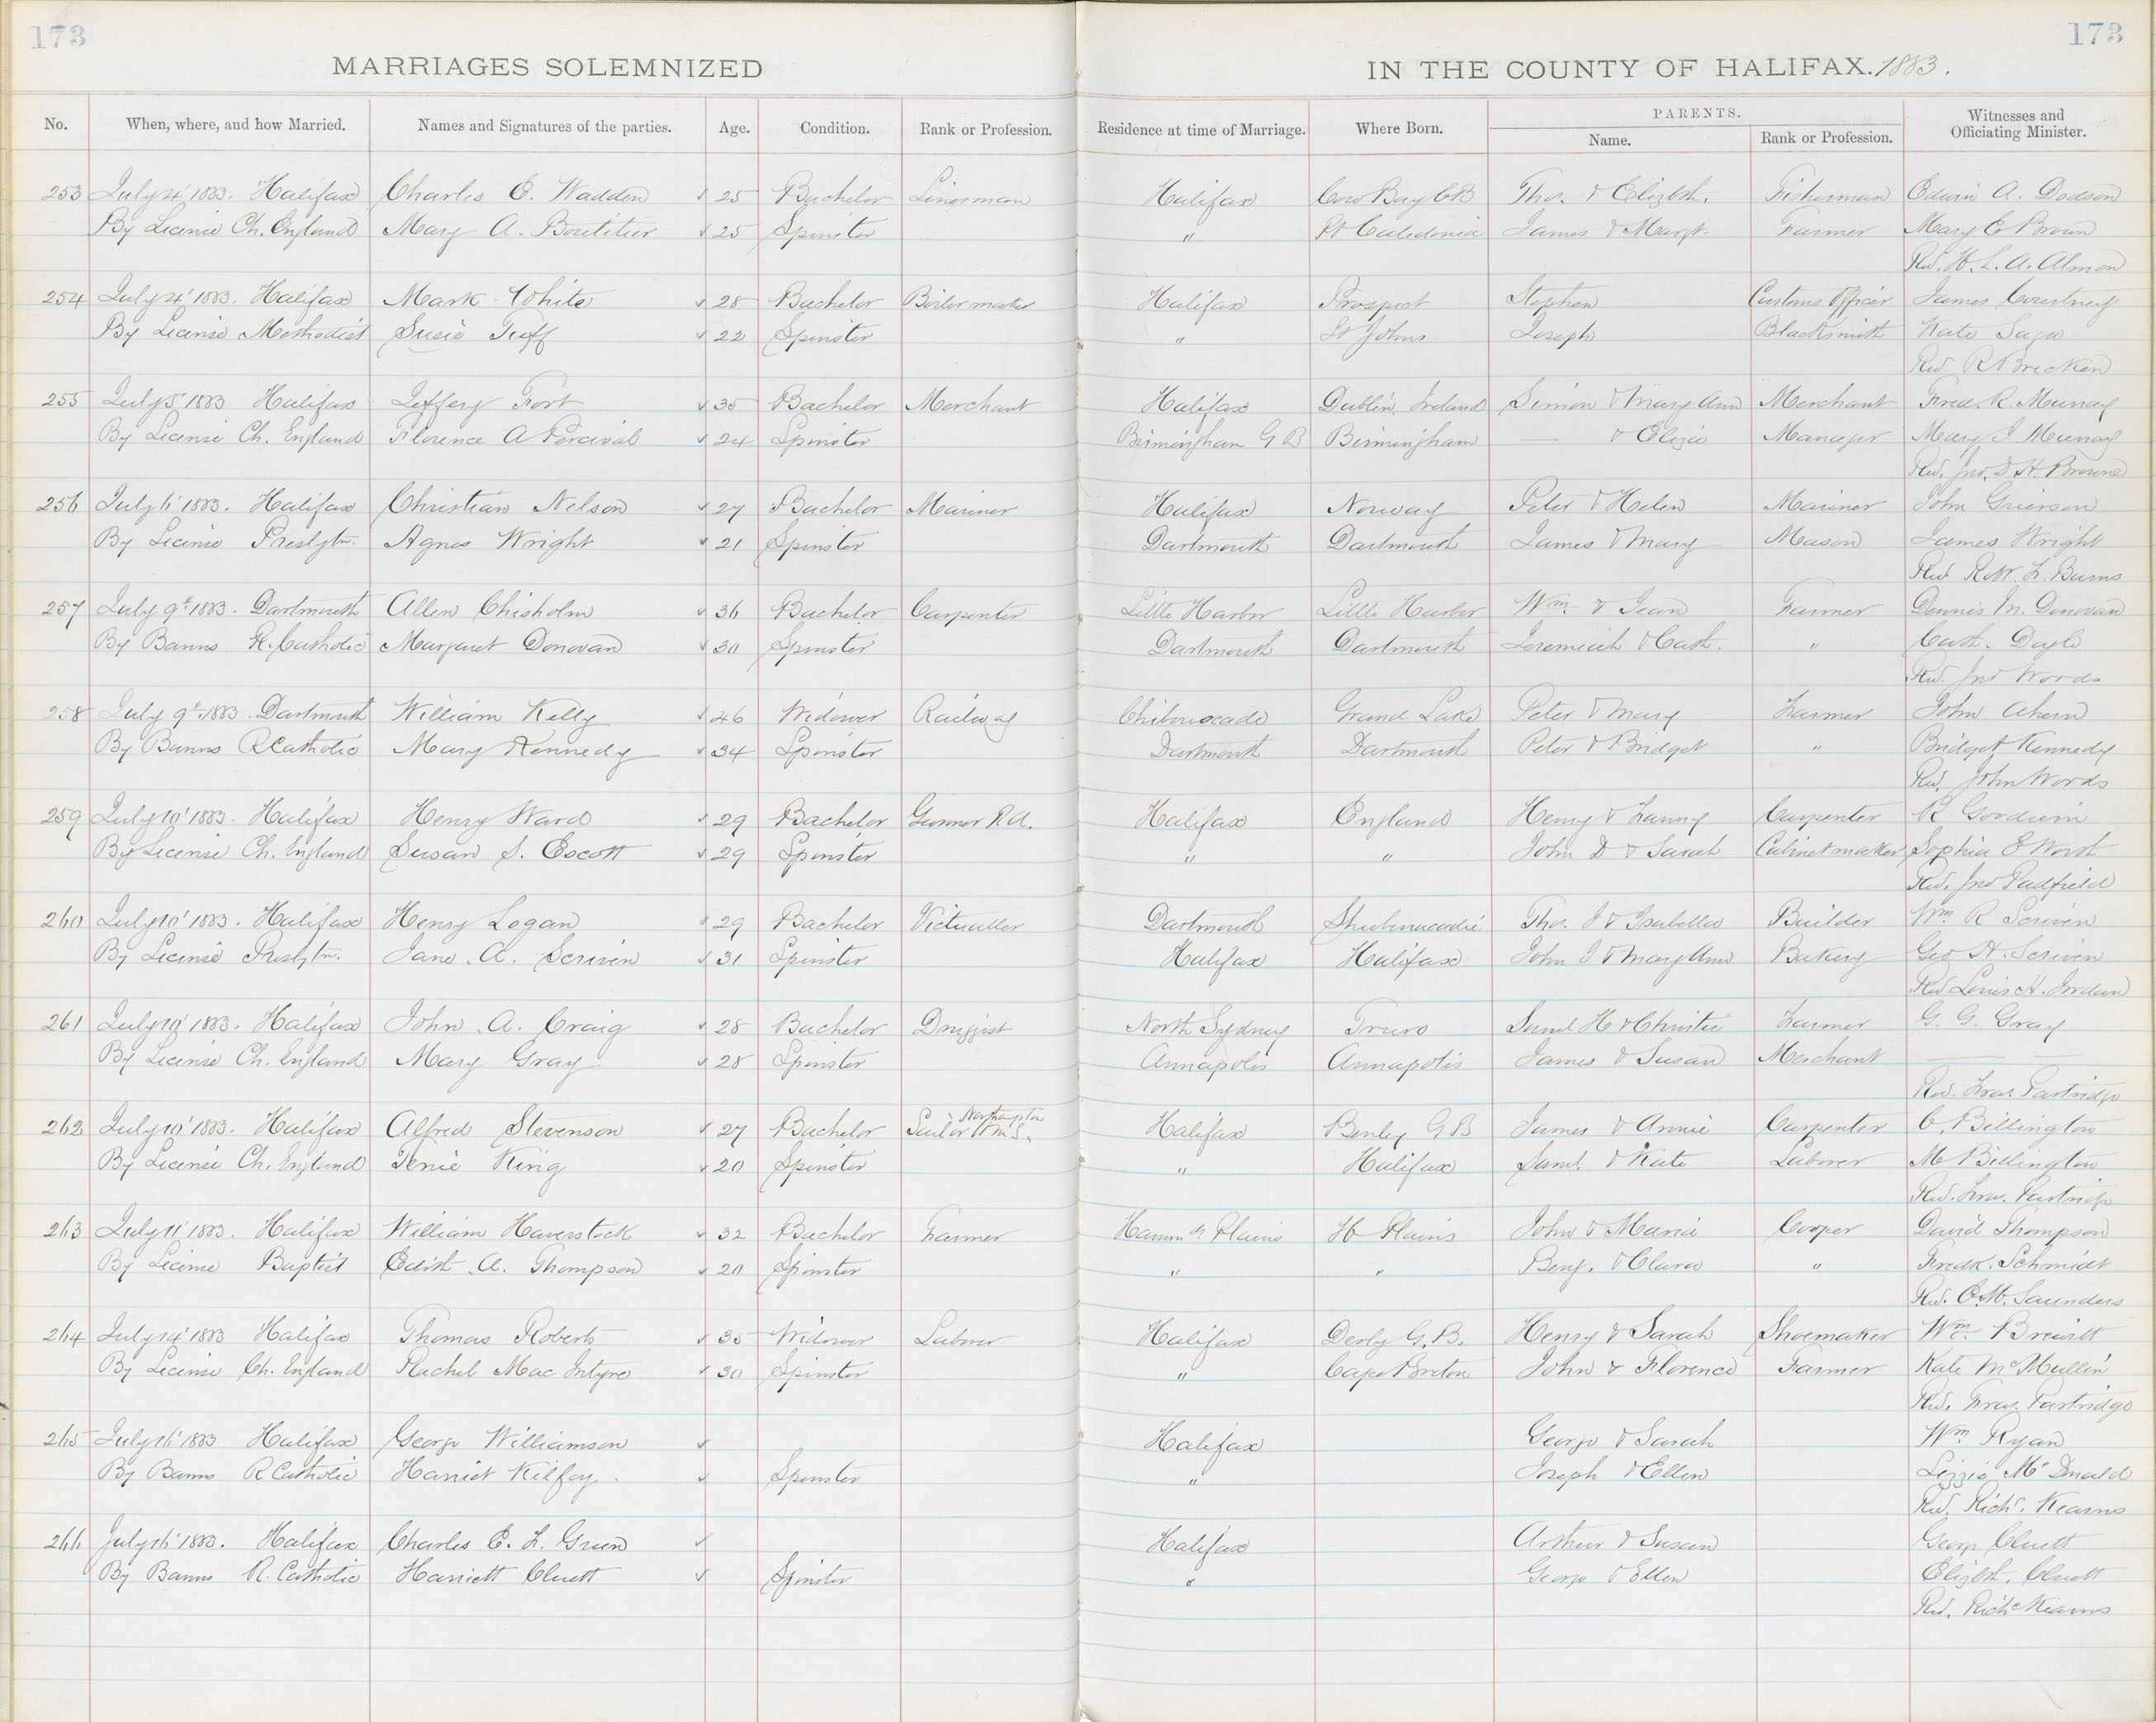 173 173
MARRIAGES SOLEMNIZED IN THE COUNTY OF HALIFAX. 1883.
No. When, where, and how Married. Names and Signatures of the parties. Age. Condition. Rank or Profession. Residence at time of Marriage. Where Born. PARENTS. Name. Rank or Profession. Witnesses and Officiating Minister.
253 July 4' 1883. Halifax Charles E. Wadden 25 Bachelor Linesman Halifax Cow Bay CB Thos. & Elizbth. Fisherman Edwin A. Dodson
By License Ch. England Mary A. Boutilier 25 Spinster " Pt Caledonia James & Margt. Farmer Mary C Brown
Rev. H. L. A. Almon
254 July 4' 1883. Halifax Mark White 28 Bachelor Boiler maker Halifax Prospect Stephen Customs Officer James Courtney
By License Methodist Susie Tuff 22 Spinster " St Johns Joseph Blacksmith Kate
Rev. R Brecken
255 July 5' 1883 Halifax Jeffery Fort 35 Bachelor Merchant Halifax Dublin, Ireland Simon & Mary Ann Merchant Fred. R. Murray
By License Ch. England Florence A Percival 24 Spinster Birmingham G B Birmingham — & Eliza Manager Mary J Murray
Rev. Jno. D H. Browne
256 July 6' 1883. Halifax Christian Nelson 27 Bachelor Mariner Halifax Norway Peter & Helen Mariner John Grierson
By License Presbytn. Agnes Wright 21 Spinster Dartmouth Dartmouth James & Mary Mason James Wright
Rev Robt. L. Burns
257 July 9th 1883. Dartmouth Allen Chisholm 36 Bachelor Carpenter Little Harbor Little Harbor Wm & Jean Farmer Dennis M. Donovan
By Banns R. Catholic Margaret Donovan 30 Spinster Dartmouth Dartmouth Jeremiah & Cath. " Cath. Doyle
Rev. Jno Woods
258 July 9th 1883. Dartmouth William Kelly 46 Widower Railway Grand Lake Peter & Mary Farmer John Ahern
By Banns R Catholic Mary Kennedy 34 Spinster Dartmouth Dartmouth Peter & Bridget " Bridget Kennedy
Rev. John Woods
259 July 10' 1883. Halifax Henry Ward 29 Bachelor Gunner R A. Halifax England Henry & Fanny Carpenter R Goodwin
By License Ch. England Susan S. Escott 29 Spinster " " John D & Sarah Cabinetmaker Sophia E
Rev. Jno Padfield
260 July 10' 1883. Halifax Henry Logan 29 Bachelor Victualler Dartmouth Shubenacadie Thos. J & Isabella Builder Wm R Scriven
By License Presbytn. Jane A. Scriven 31 Spinster Halifax Halifax John J & Mary Ann Bakery Geo H. Scriven
Rev Louis H. Jordan
261 July 10' 1883. Halifax John A. Craig 28 Bachelor Druggist North Sydney Truro Saml H & Christie Farmer G. G. Gray
By License Ch. England Mary Gray 28 Spinster Annapolis Annapolis James & Susan Merchant — —
Rev. Fras. Partridge
262 July 10' 1883. Halifax Alfred Stevenson 27 Bachelor Sailor H M S. Northampton Halifax G B James & Annie Carpenter C. Billington
By License Ch. England Tenie King 20 Spinster " Halifax Saml. & Kate Laborer M Billington
Rev. Fras. Partridge
263 July 11' 1883. Halifax William Haverstock 32 Bachelor Farmer Hammds Plains H Plains John & Maria Cooper David Thompson
By License Baptist Edith A. Thompson 20 Spinster " " Benj. & Clara " Fredk. Schmidt
Rev. E. M. Saunders
264 July 14' 1883 Halifax Thomas Roberts 35 Widower Laborer Halifax Derby G. B. Henry & Sarah Shoemaker Wm.
By License Ch. England Rachel Mac Intyre 30 Spinster " Cape Breton John & Florence Farmer Kate McMullin
Rev. Fras. Partridge
265 July 16' 1883 Halifax George Williamson Halifax George & Sarah Wm Ryan
By Banns R Catholic Harriet Kilfoy. Spinster " Joseph & Ellen Lizzie McDonald
Rev. Richd. Kearns
266 July 16' 1883. Halifax Charles E. L. Green Halifax Arthur & Susan George Cluett
By Banns R. Catholic Harriett Cluett Spinster " George & Ellen Elizbth. Cluett
Rev. Richd Kearns